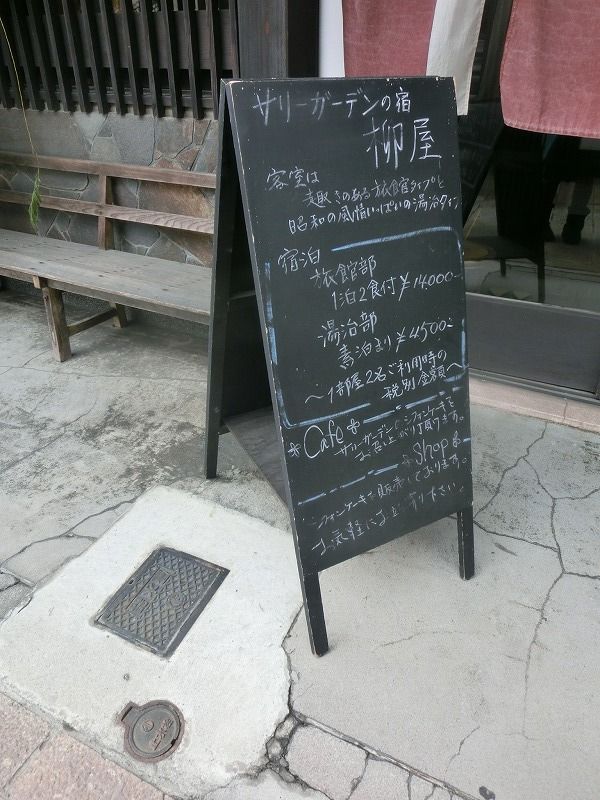 サリーガーデンの宿
柳屋
客室は
趣きのある旅館タイプと
昭和の風情いっぱいの湯治タイプ
宿泊
旅館部
1泊2食付￥14,000-
湯治部
素泊まり￥4,500-
～1部屋2名ご利用時の
税別金額～
*Cafe*
サリーガーデンのシフォンケーキを
お召し上がり頂けます。
*Shop*
シフォンケーキを販売しております。
お気軽にお立ち寄り下さい。